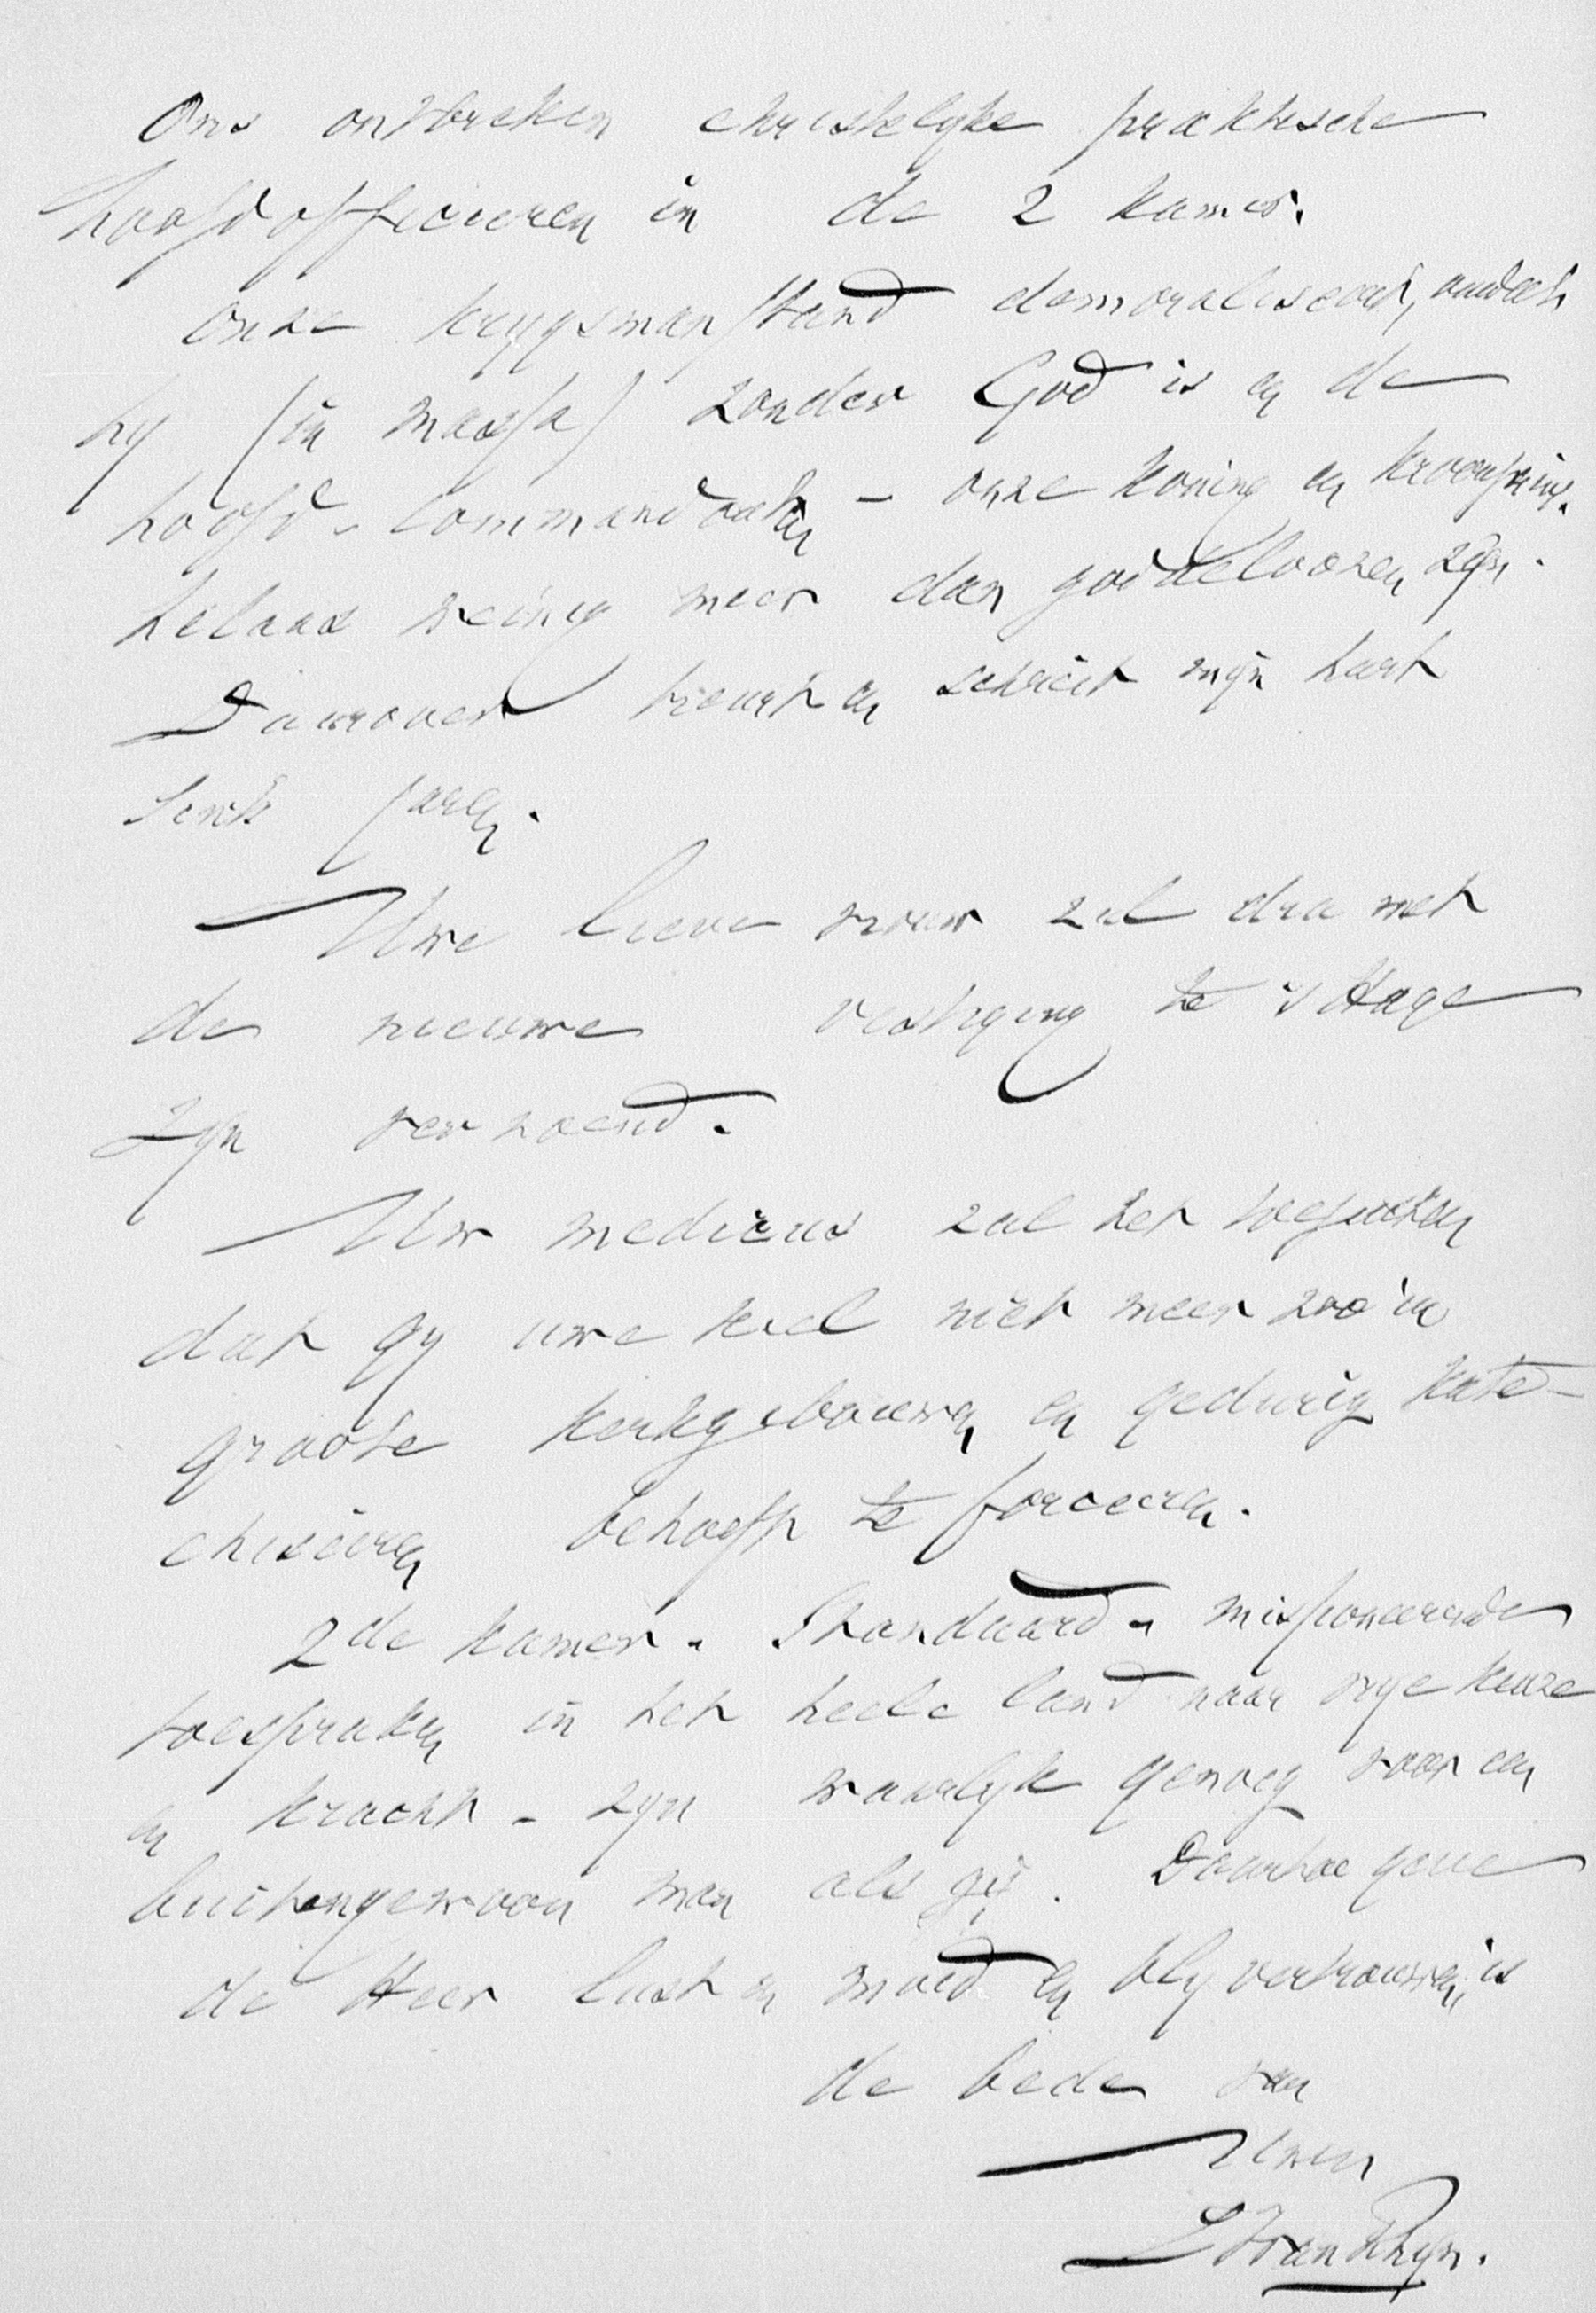 Ons ontbreken christelyke praktische
hoofdofficieren in de 2 kamer.
Onze krygsmanstand demoraliseert, omdat
hy (in massa) zonder God is en de
hoofd-commandanten - onze koning en kroonprins.
helaas weinig meer dan goddeloozen zyn.
Daarover treurt en schreit mijn hart
sinds jaren.
Uwe lieve vrouw zal dra met
de nieuwe vestiging te 's Hage
zyn verzoend.
Uw medicus zal het toejuichen
dat gy uwe keel niet meer zoo in
groote kerkgebouwen en gedurig kate-
chiseeren behoeft te forceeren.
2de kamer. Standaard.
toespraken in het heele land naar vrye keuze
en kracht - zyn waarlyk genoeg voor een
buitengewoon man als gij. Daartoe geve
de Heer lust en moed en bly vertrouwen, is
de bede van
Uwen
L van Rhyn.